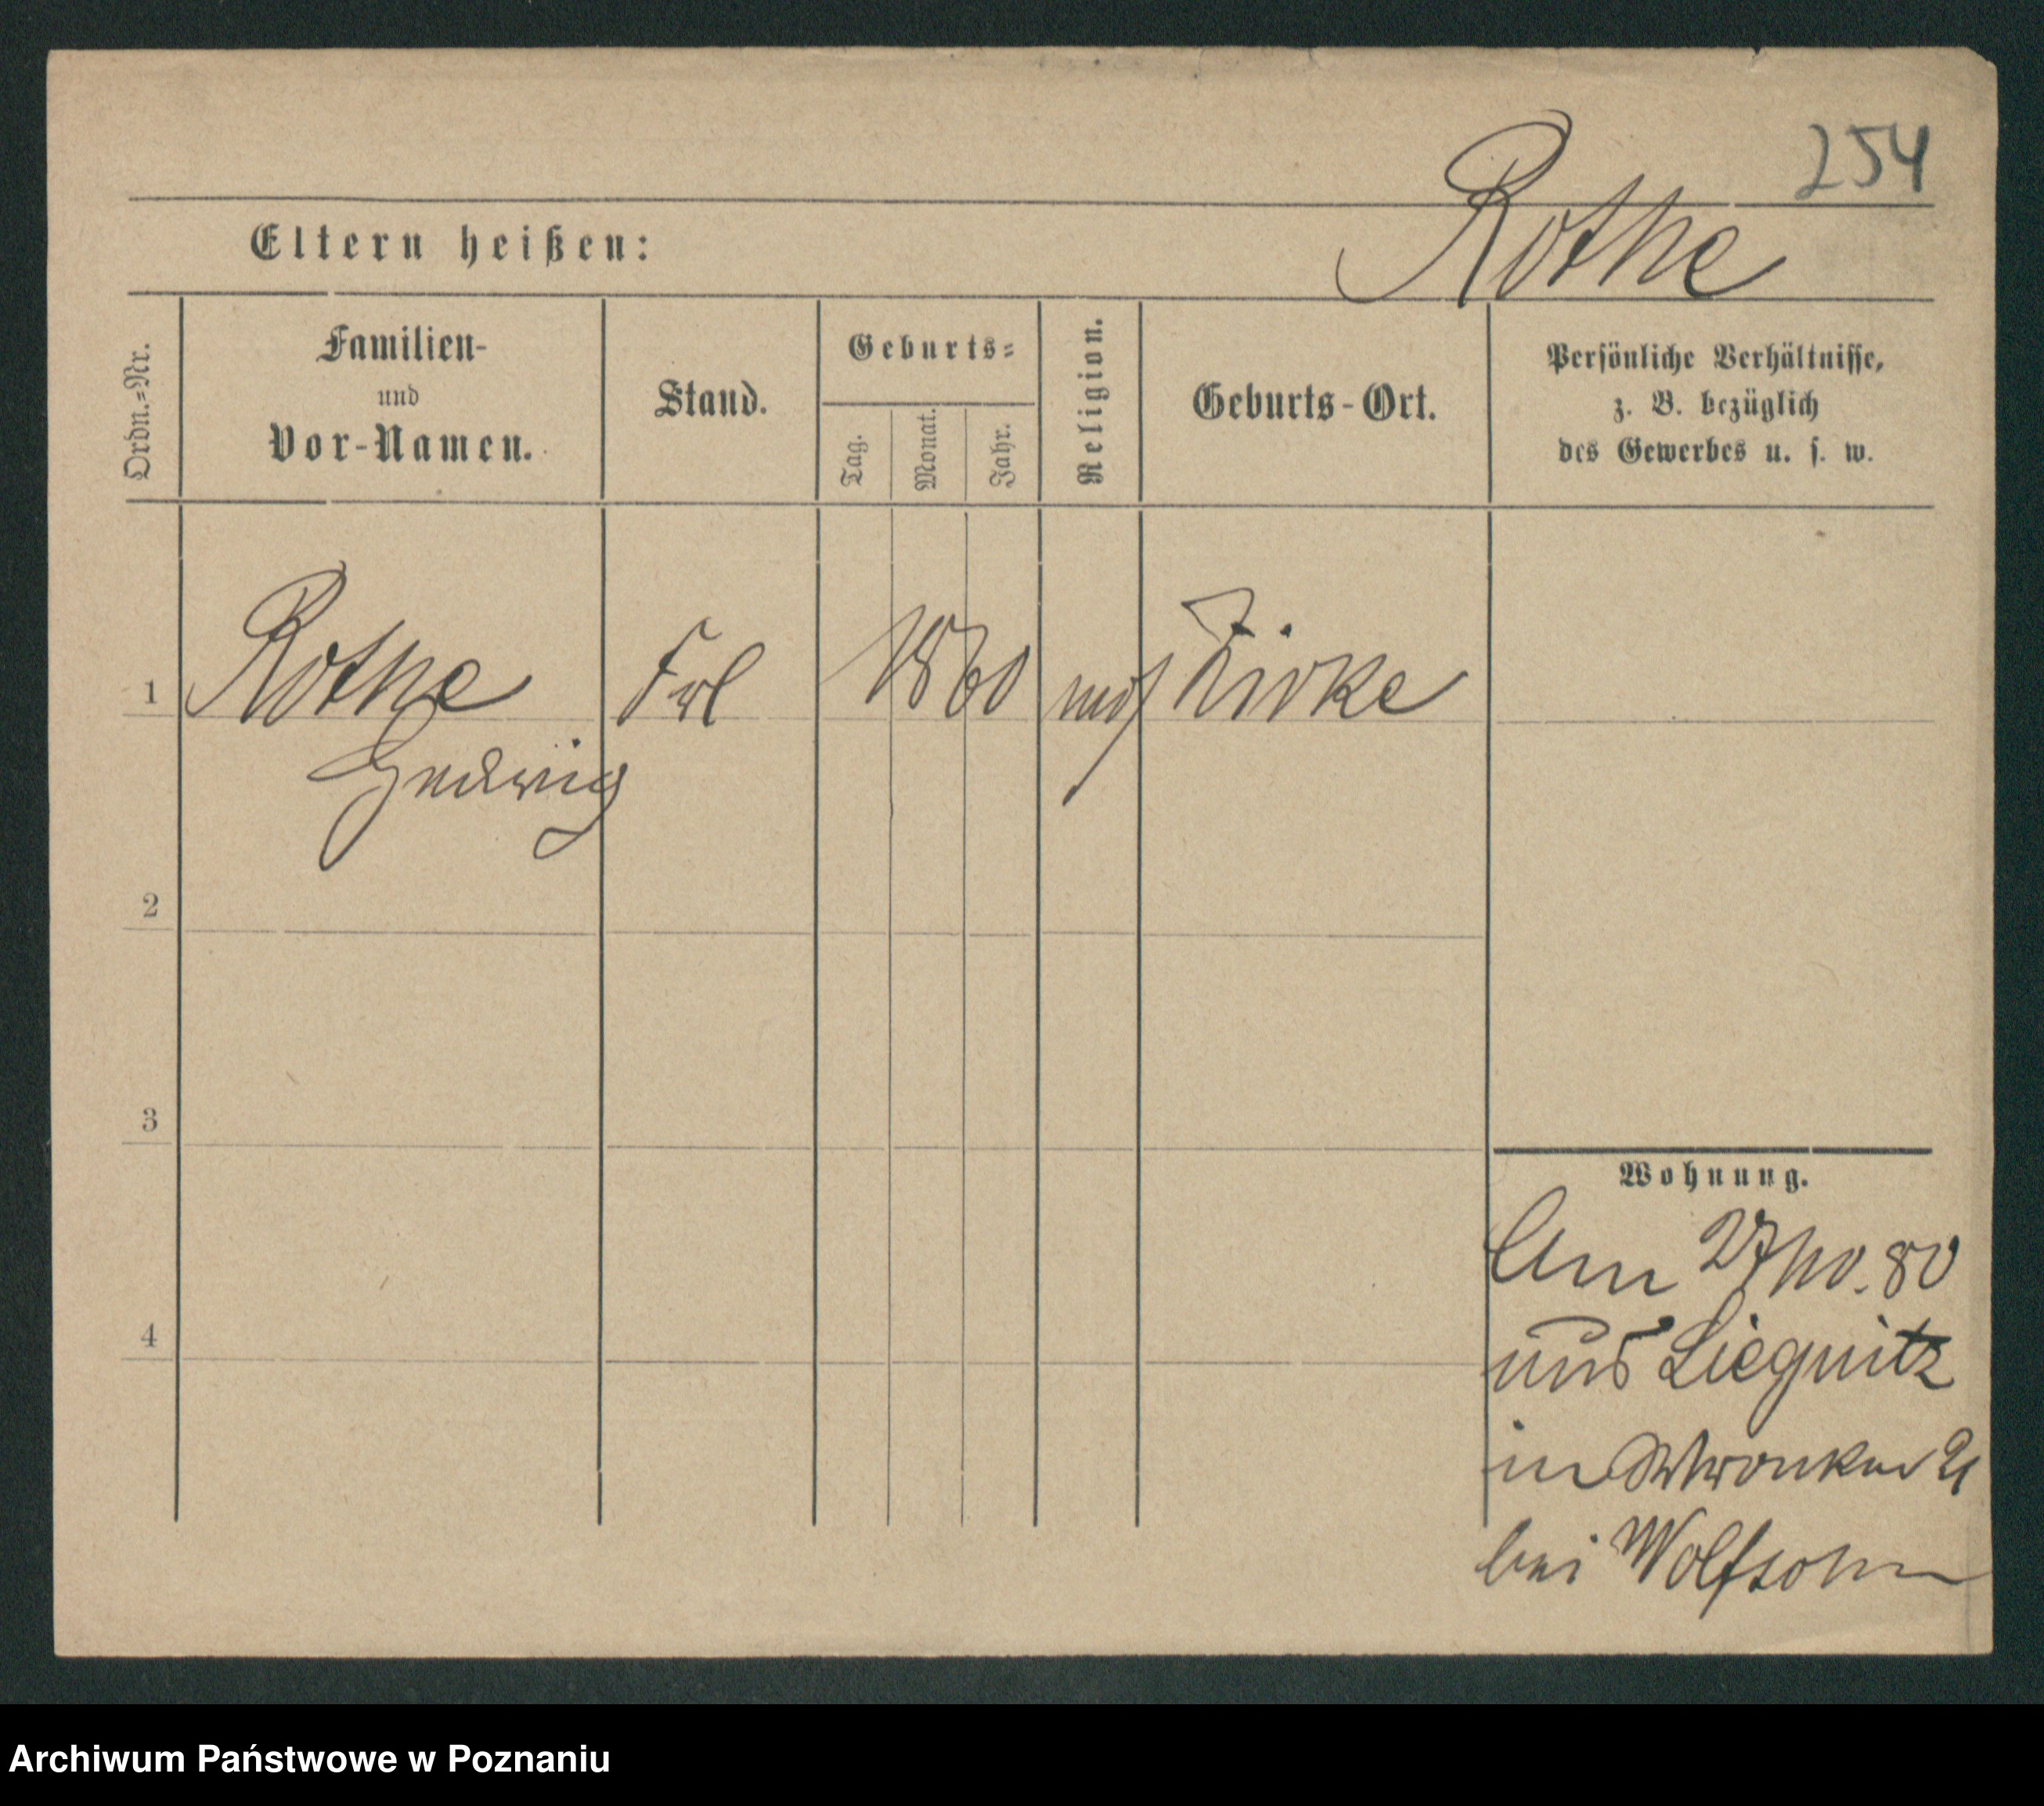 254
Rothe
Eltern heißen:
Ordn.=Nr.
Familien-
und
Vor-Namen.
Stand.
Geburts=
Tag.
Monat.
Jahr.
Religion.
Geburts-Ort.
Persönliche Verhältnisse,
z. B. bezüglich
des Gewerbes u. s. w.
1 Rothe Frl 1860 mos Zirke
Hedwig
2
3
4
Wohnung.
Am 27/10. 80
aus Liegnitz
in Wronker 21
bei Wolfsohn
Archiwum Państwowe w Poznaniu